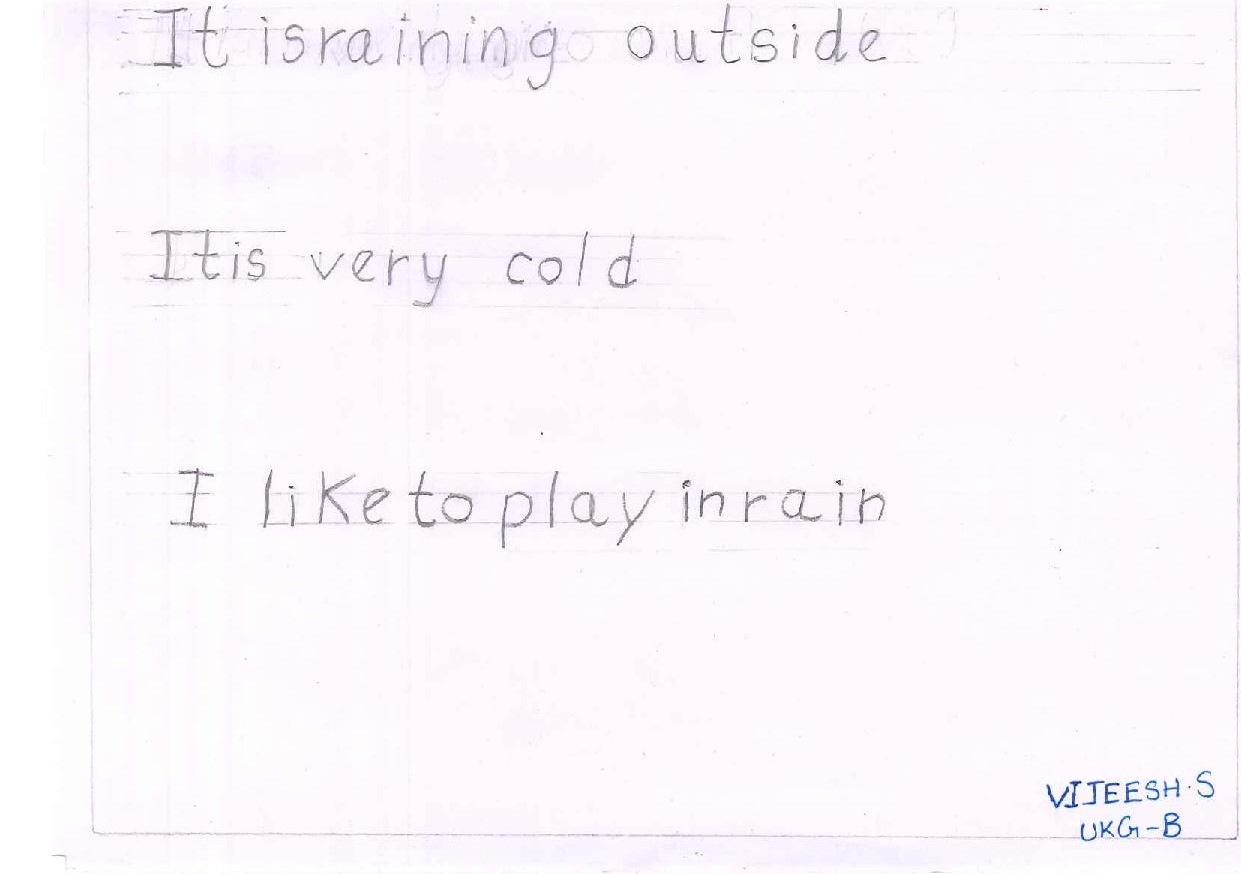 It israining outside
Itis very cold
I like to play inrain
VIJEESH.S
UKG-B